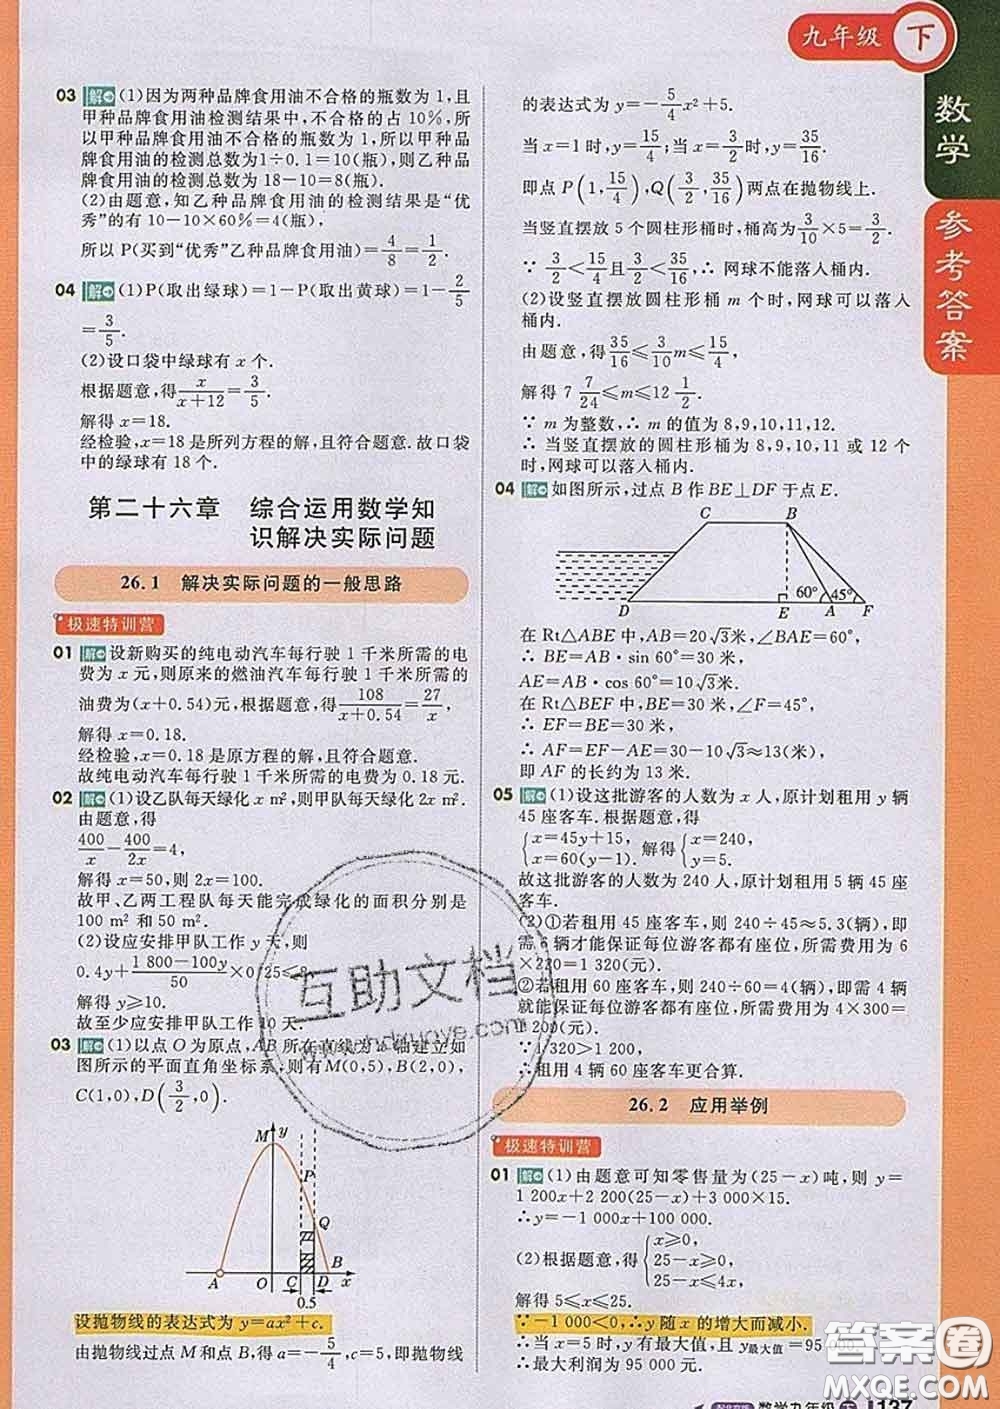 九年级 下
数学
参考答案
03 解 (1)因为两种品牌食用油不合格的瓶数为1,且
甲种品牌食用油检测结果中,不合格的占10%,所
以甲种品牌食用油不合格的瓶数为1,所以甲种品
牌食用油的检测总数为1÷0.1=10(瓶),则乙种品
牌食用油的检测总数为18-10=8(瓶).
(2)由题意,知乙种品牌食用油的检测结果是“优
秀”的有10-10×60%=4(瓶).
所以P(买到“优秀”乙种品牌食用油)=4/8=1/2.
04 解 (1)P(取出绿球)=1-P(取出黄球)=1-2/5
=3/5.
(2)设口袋中绿球有x个.
根据题意,得x/(x+12)=3/5.
解得x=18.
经检验,x=18是所列方程的解,且符合题意.故口袋
中的绿球有18个.
第二十六章 综合运用数学知
识解决实际问题
26.1 解决实际问题的一般思路
极速特训营
01 解 设新购买的纯电动汽车每行驶1千米所需的电
费为x元,则原来的燃油汽车每行驶1千米所需的
油费为(x+0.54)元,根据题意,得108/(x+0.54)=27/x,
解得x=0.18.
经检验,x=0.18是原方程的解,且符合题意.
故纯电动汽车每行驶1千米所需的电费为0.18元.
02 解 (1)设乙队每天绿化x m²,则甲队每天绿化2x m².
由题意,得
400/x-400/2x=4,
解得x=50,则2x=100.
故甲、乙两工程队每天能完成绿化的面积分别是
100 m²和50 m².
(2)设应安排甲队工作y天,则
0.4y+(1 800-100y)/50×0.25≤8,
解得y≥10.
故至少应安排甲队工作10天.
03 解 (1)以点O为原点,AB所在直线为x轴建立如
图所示的平面直角坐标系,则有M(0,5),B(2,0),
C(1,0),D(3/2,0).
M y
P
Q
B
A O C D x
0.5
设抛物线的表达式为y=ax²+c.
由抛物线过点M和点B,得a=-5/4,c=5,即抛物线
的表达式为y=-5/4x²+5.
当x=1时,y=15/4;当x=3/2时,y=35/16.
即点P(1,15/4),Q(3/2,35/16)两点在抛物线上.
当竖直摆放5个圆柱形桶时,桶高为3/10×5=3/2.
∵3/2<15/4且3/2<35/16,∴网球不能落入桶中.
(2)设竖直摆放圆柱形桶m个时,网球可以落入
桶内.
由题意,得35/16≤3/10m≤15/4,
解得7 7/24≤m≤12 1/2.
∵m为整数,∴m的值为8,9,10,11,12.
∴当竖直摆放的圆柱形桶为8,9,10,11或12个
时,网球可以落入桶内.
04 解 如图所示,过点B作BE⊥DF于点E.
C B
60° 45°
D E A F
在Rt△ABE中,AB=20√3米,∠BAE=60°,
∴BE=AB·sin 60°=30(米),
AE=AB·cos 60°=10√3(米).
在Rt△BEF中,BE=30米,∠F=45°,
∴EF=BE=30米.
∴AF=EF-AE=30-10√3≈13(米),
即AF的长约为13米.
05 解 (1)设这批游客的人数为x人,原计划租用y辆
45座客车.根据题意,得
{x=45y+15, 解得{x=240,
{x=60(y-1). {y=5.
故这批游客的人数为240人,原计划租用5辆45座
客车.
(2)①若租用45座客车,则240÷45≈5.3(辆),即
需6辆才能保证每位游客都有座位,所需费用为6
×220=1 320(元).
②若租用60座客车,则240÷60=4(辆),即需4辆
就能保证每位游客都有座位,所需费用为4×300=
1 200(元).
∵1 320>1 200.
∴租用4辆60座客车更合算.
26.2 应用举例
极速特训营
01 解 (1)由题意可知零售量为(25-x)吨,则y=
1 200x+2 200(25-x)=3 000×15.
∴y=-1 000x+100 000.
(2)根据题意,得{x≥0,
25-x≥0,
25-x≤4x,
解得5≤x≤25.
∵-1 000<0,∴y随x的增大而减小.
∴当x=5时,y有最大值,且y最大值=95
∴最大利润为95 000元.
数学九年级 下 137
互助文档
答案圈
MXQE.COM